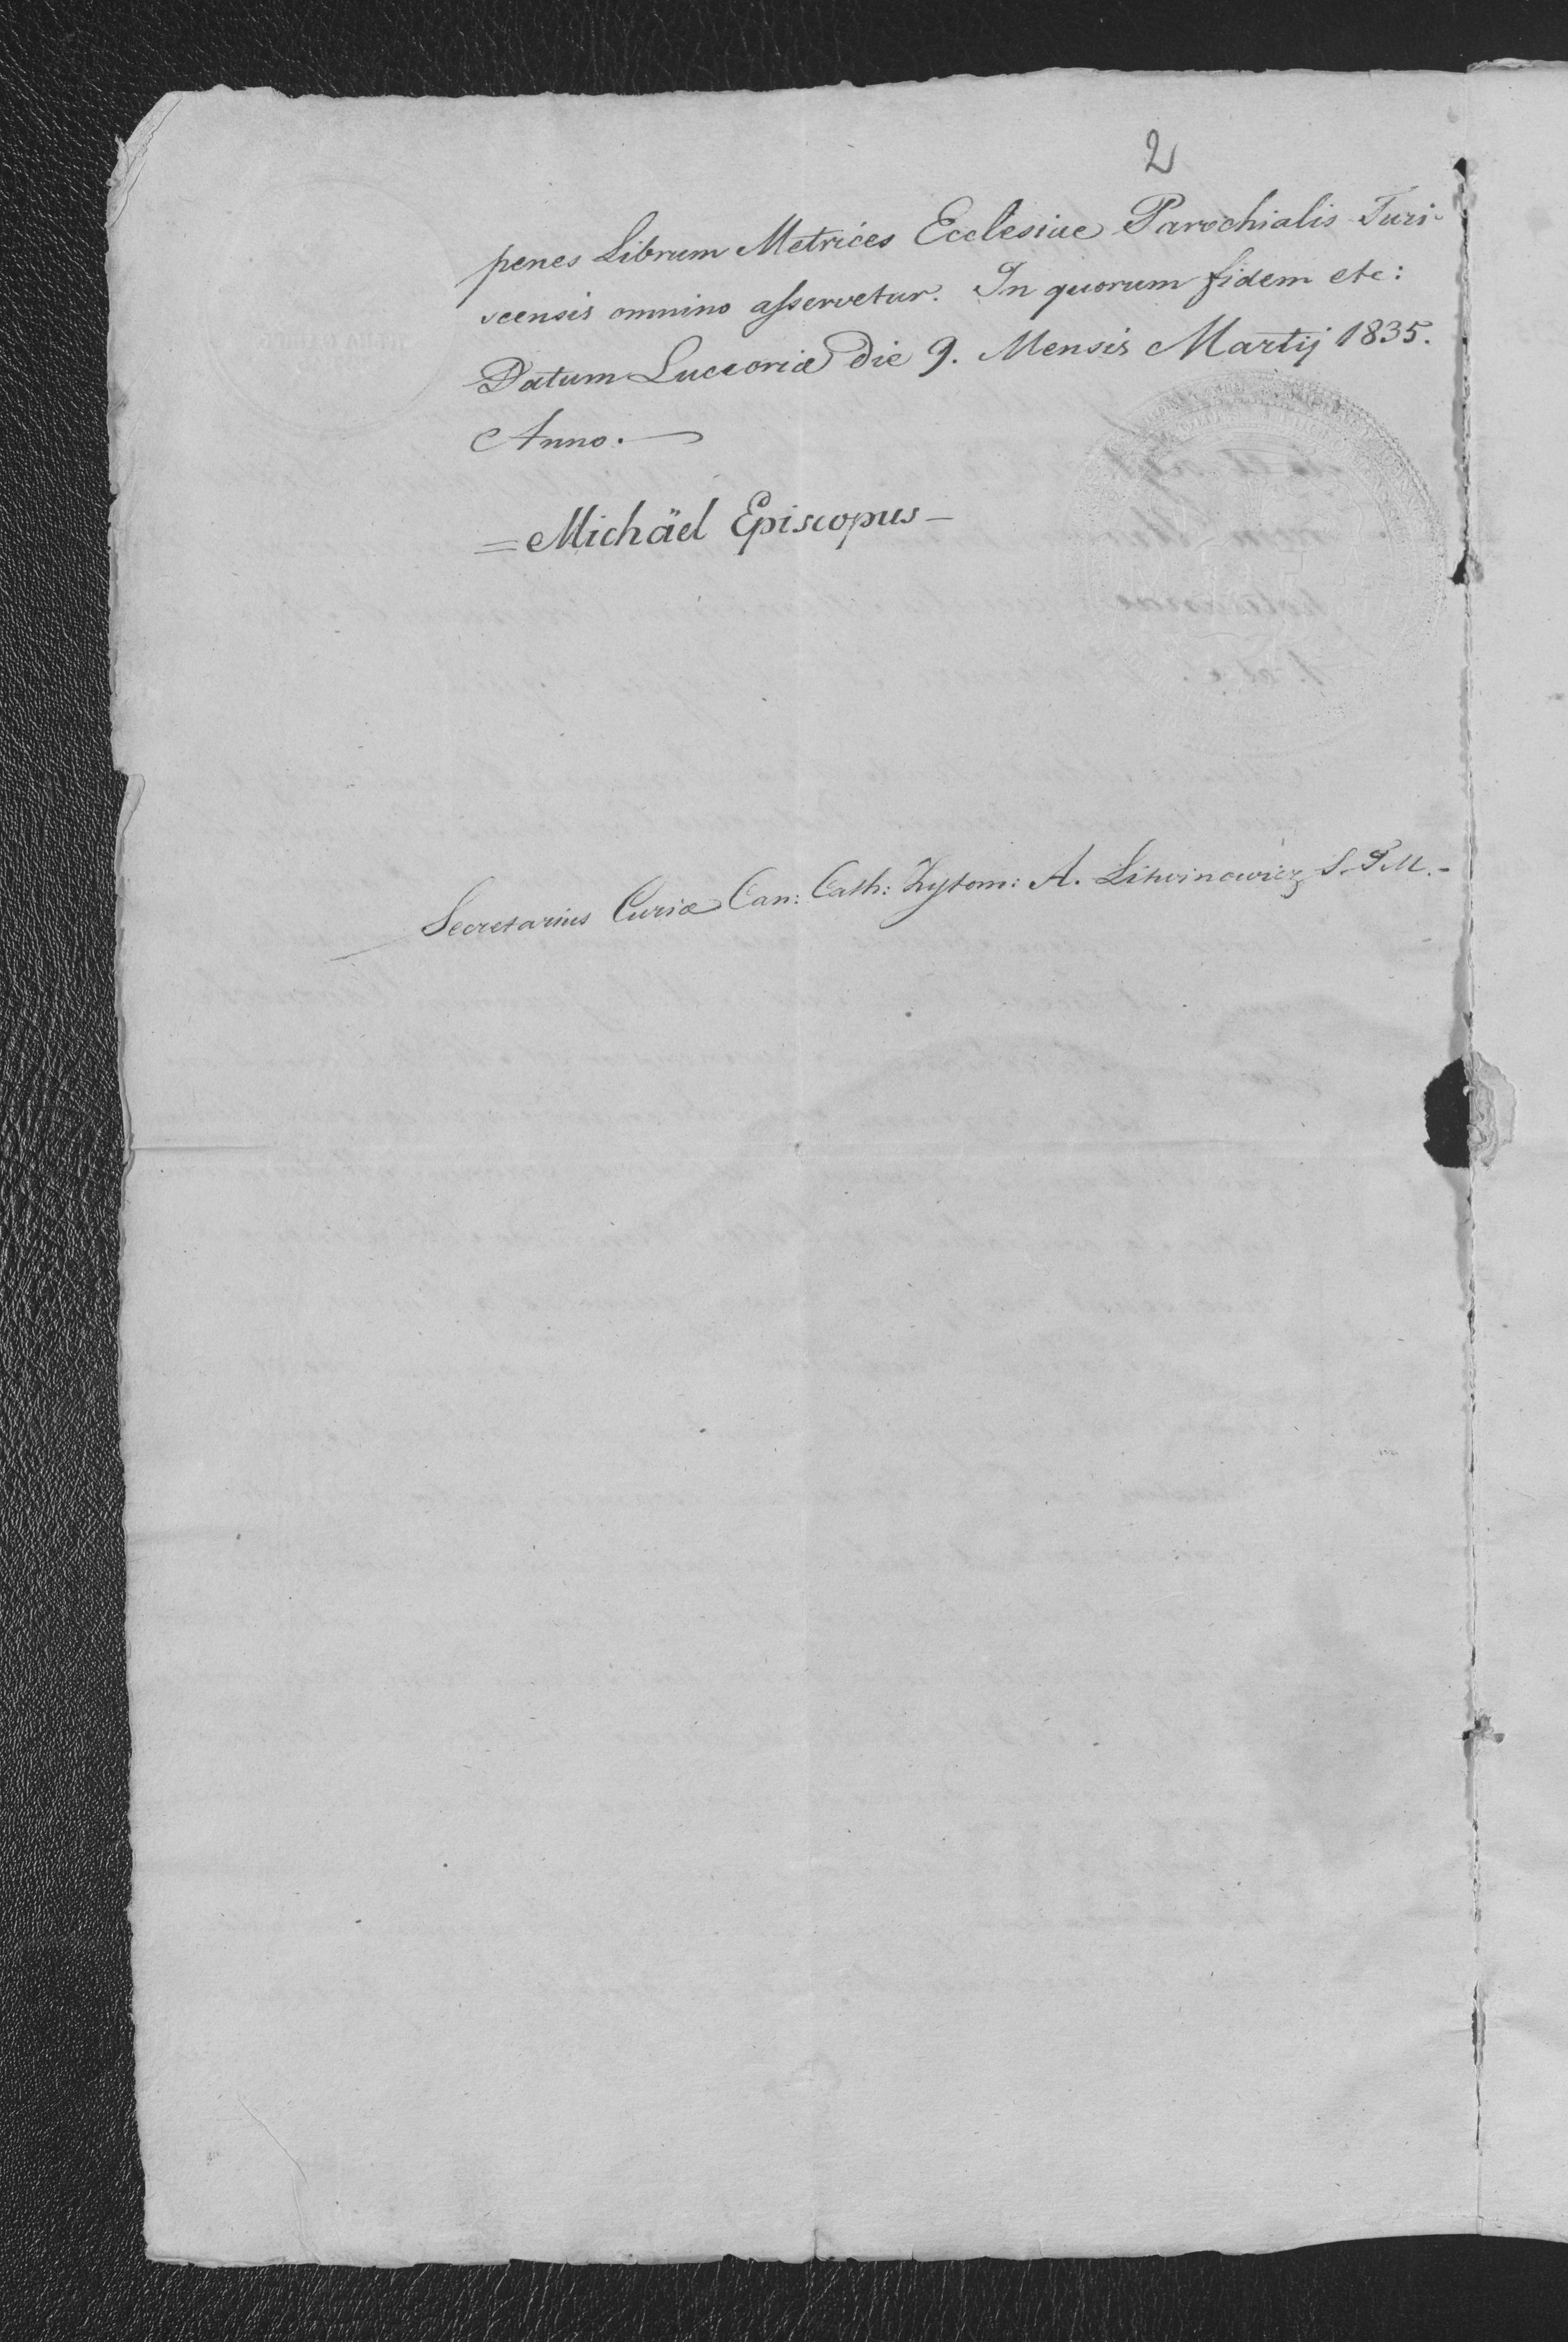 2
penes Librum Metrices Ecclesiae Parochialis Turi-
scensis omnino asservetur. In quorum fidem etc:
Datum Luceoriæ die 9. Mensis Martij 1835.
Anno. —
= Michäel Episcopus –
Secretarius Curiæ Can: Cath: Zytom: A. Litwinowicz S. T. M. –